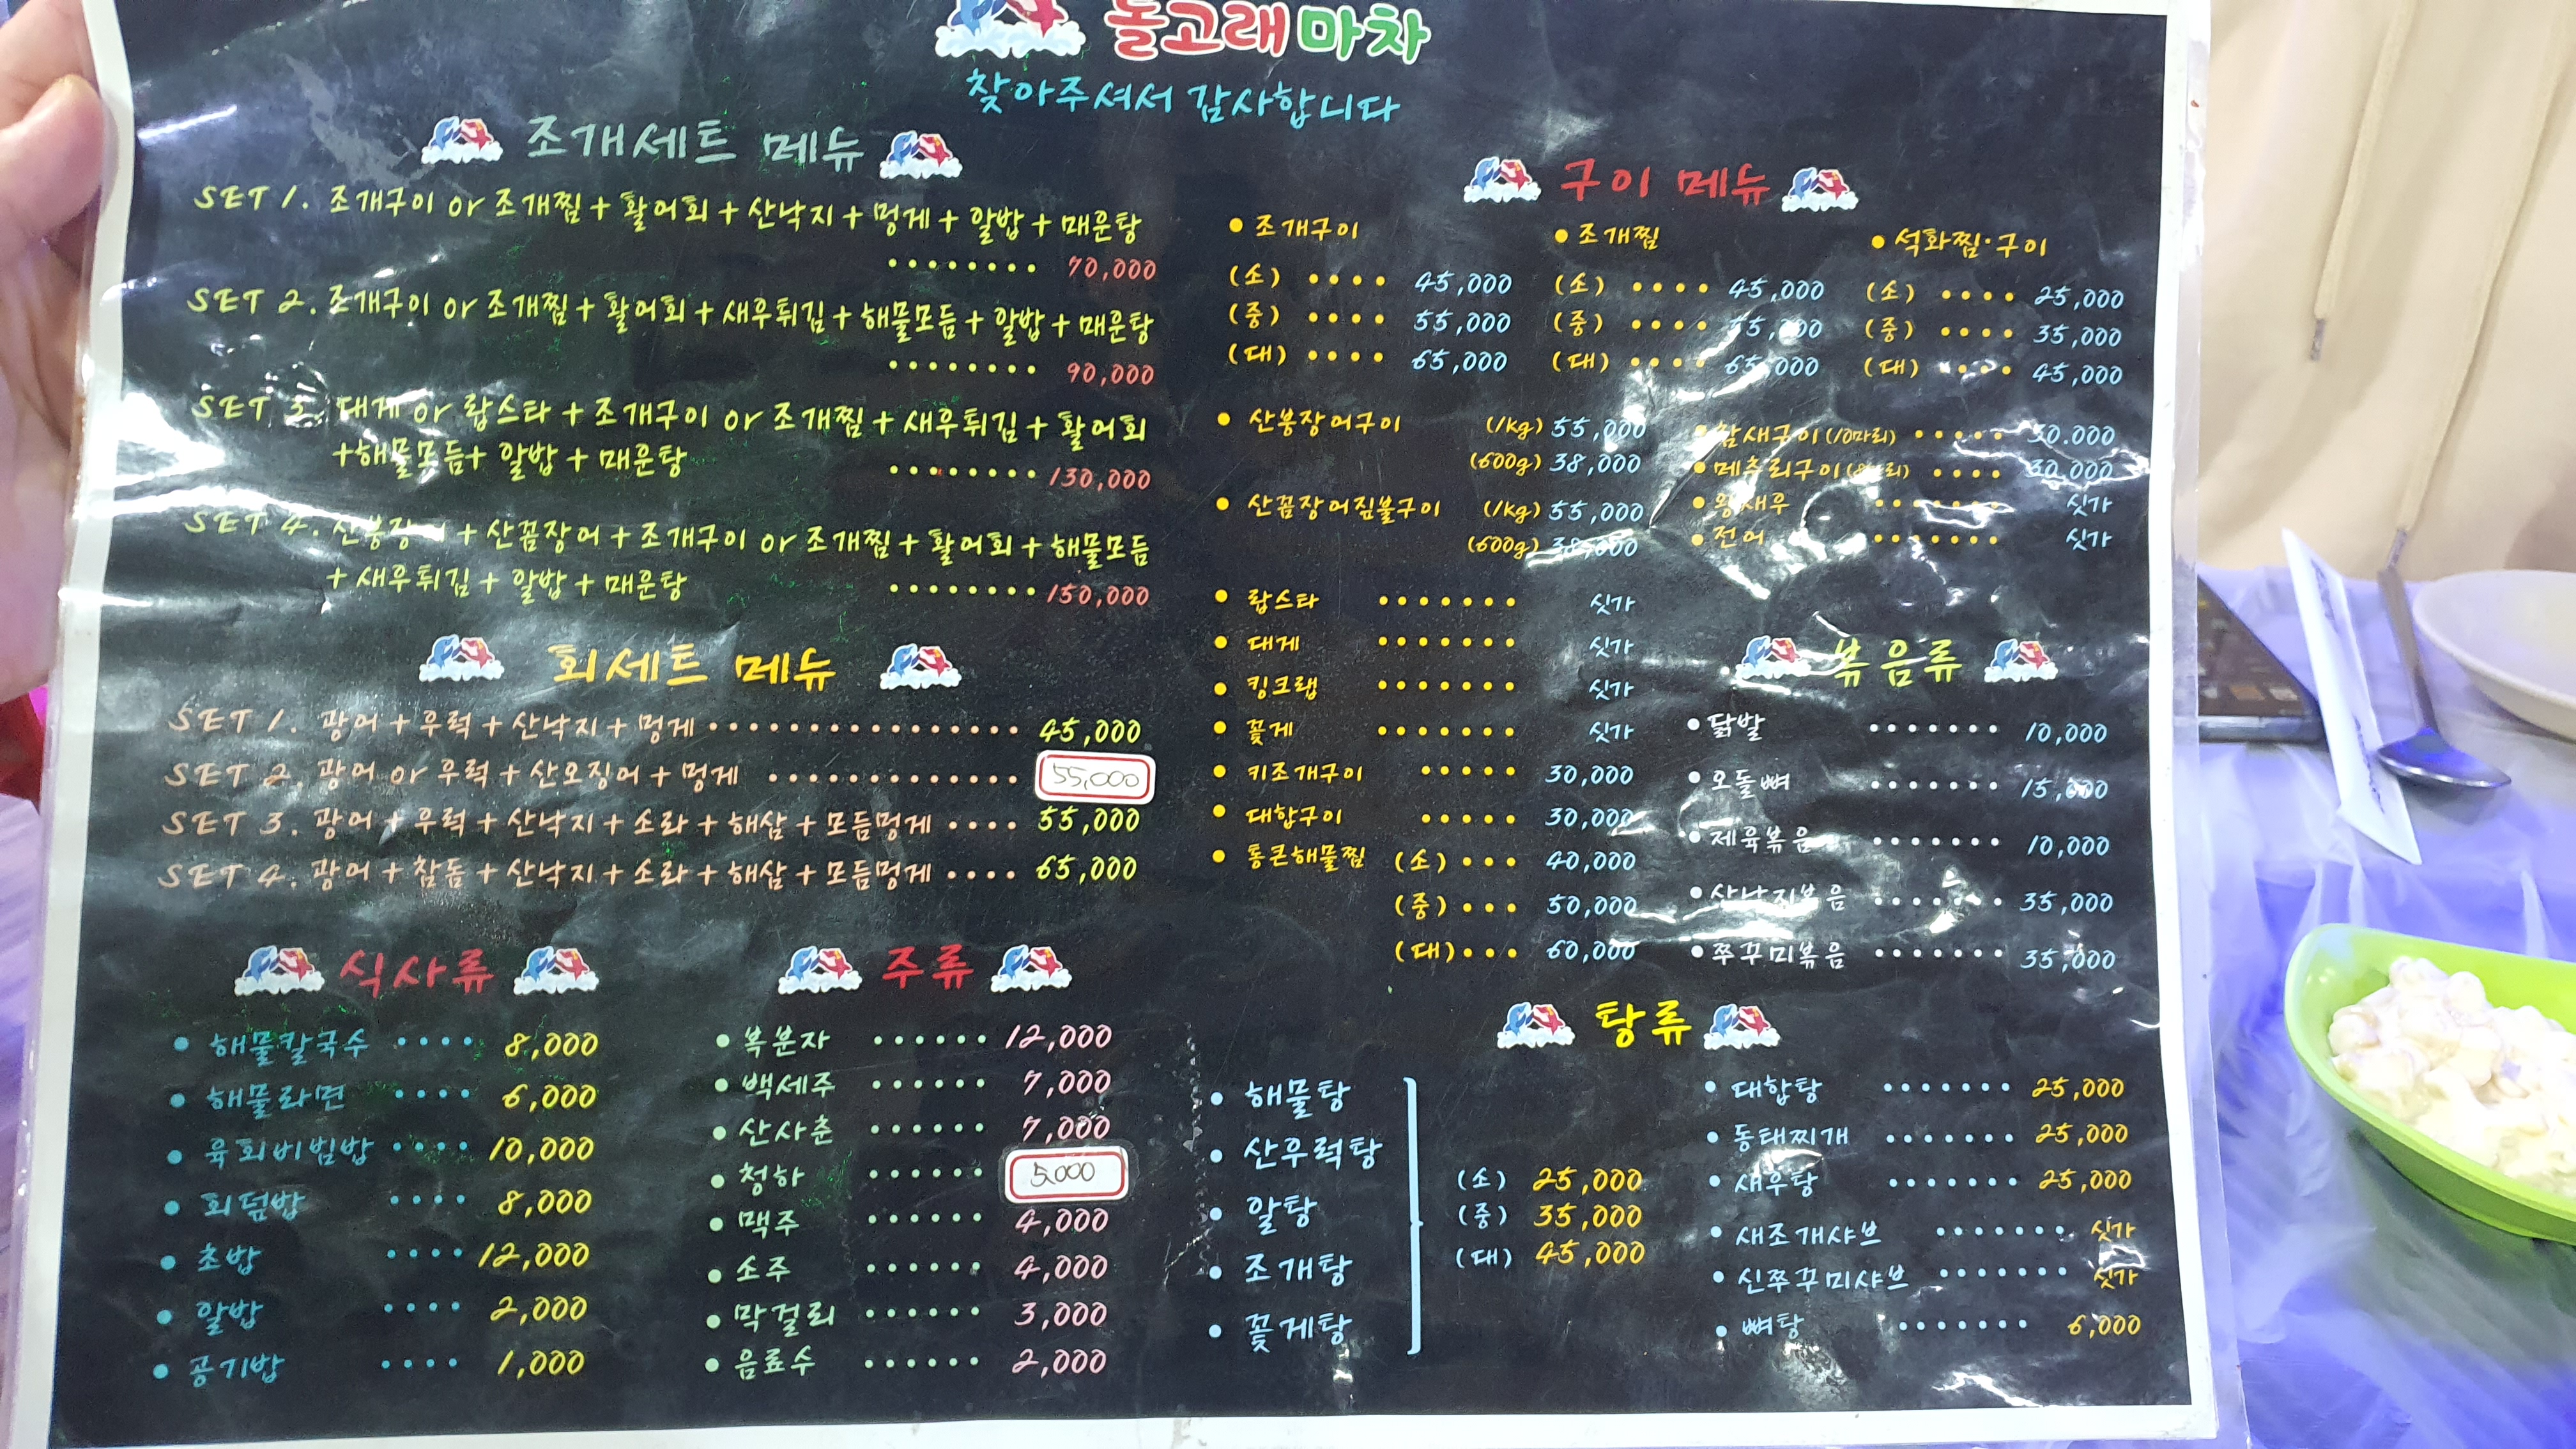 돌고래마차
찾아주셔서 감사합니다
조개세트 메뉴
SET 1. 조개구이 or 조개찜 + 활어회 + 산낙지 + 멍게 + 알밥 + 매운탕
········ 70,000
SET 2. 조개구이 or 조개찜 + 활어회 + 새우튀김 + 해물모듬 + 알밥 + 매운탕
········ 90,000
SET 3. 대게 or 랍스타 + 조개구이 or 조개찜 + 새우튀김 + 활어회
+해물모듬+ 알밥 + 매운탕
········ 130,000
SET 4. 산붕장어 + 산꼼장어 + 조개구이 or 조개찜 + 활어회 + 해물모듬
+ 새우튀김 + 알밥 + 매운탕
········ 150,000
회세트 메뉴
SET 1. 광어 + 우럭 + 산낙지 + 멍게 ················ 45,000
SET 2. 광어 or 우럭 + 산오징어 + 멍게 ············· 55,000
SET 3. 광어 + 우럭 + 산낙지 + 소라 + 해삼 + 모듬멍게 ···· 55,000
SET 4. 광어 + 참돔 + 산낙지 + 소라 + 해삼 + 모듬멍게 ···· 65,000
식사류
• 해물칼국수 ···· 8,000
• 해물라면 ···· 6,000
• 육회비빔밥 ···· 10,000
• 회덮밥 ···· 8,000
• 초밥 ···· 12,000
• 알밥 ···· 2,000
• 공기밥 ···· 1,000
주류
• 복분자 ······ 12,000
• 백세주 ······ 7,000
• 산사춘 ······ 7,000
• 청하 ······ 5,000
• 맥주 ······ 4,000
• 소주 ······ 4,000
• 막걸리 ······ 3,000
• 음료수 ······ 2,000
구이 메뉴
• 조개구이
(소) ···· 45,000
(중) ···· 55,000
(대) ···· 65,000
• 조개찜
(소) ···· 45,000
(중) ···· 55,000
(대) ···· 65,000
• 석화찜·구이
(소) ···· 25,000
(중) ···· 35,000
(대) ···· 45,000
• 산붕장어구이 (1kg) 55,000
(600g) 38,000
• 산꼼장어짚불구이 (1kg) 55,000
(600g) 38,000
• 랍스타 ······· 싯가
• 대게 ······· 싯가
• 킹크랩 ······· 싯가
• 꽃게 ······· 싯가
• 키조개구이 ····· 30,000
• 대합구이 ····· 30,000
• 통큰해물찜 (소) ··· 40,000
(중) ··· 50,000
(대) ··· 60,000
• 참새구이(10마리) ····· 30.000
• 메추리구이 ···· 30,000
• 왕새우 ······· 싯가
• 전어 ······· 싯가
볶음류
• 닭발 ······· 10,000
• 오돌뼈 ······· 15,000
• 제육볶음 ······· 10,000
• 산낙지볶음 ······· 35,000
• 쭈꾸미볶음 ······· 35,000
탕류
• 해물탕
• 산우럭탕
• 알탕
• 조개탕
• 꽃게탕
(소) 25,000
(중) 35,000
(대) 45,000
• 대합탕 ······· 25,000
• 동태찌개 ······· 25,000
• 새우탕 ······· 25,000
• 새조개샤브 ······· 싯가
• 신쭈꾸미샤브 ······· 싯가
• 뼈탕 ······· 6,000